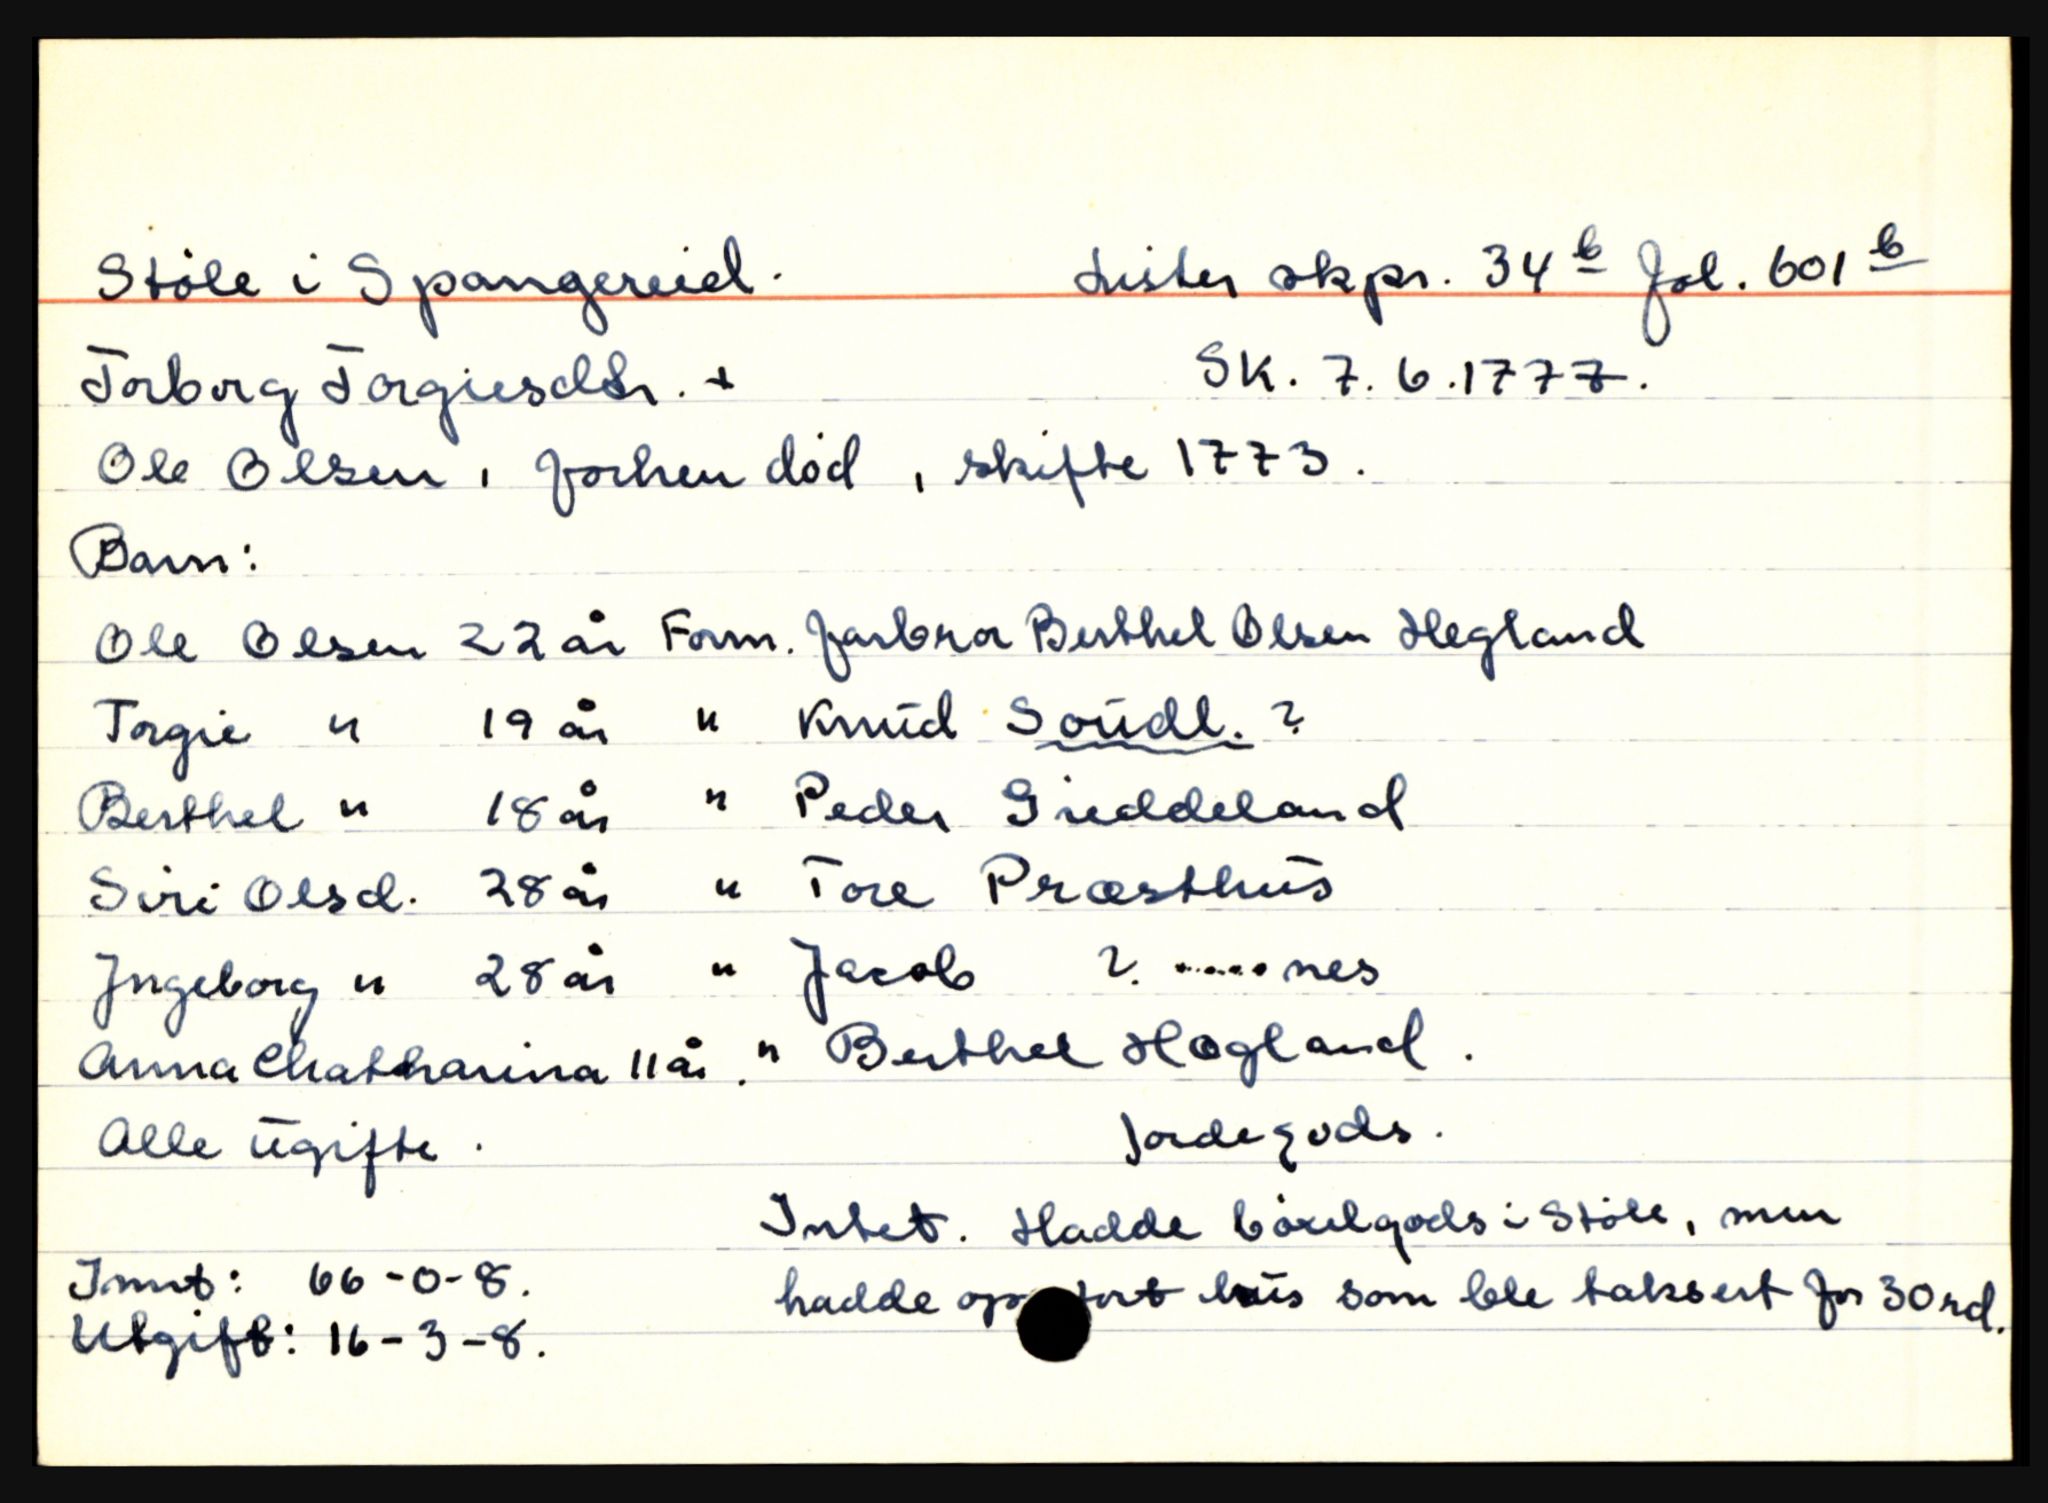 Støle i Spangereid. Lister skpr. 34 b fol. 601 b
Torborg Torgiesdtr. + SK. 7.6.1777.
Ole Olsen, forhen død, skifte 1773.
Barn:
Ole Olsen 22 år Form. farbror Berthel Olsen Hegland
Torgie " 19 år " Knud Soudl. ?
Berthel " 18 år " Peder Gieddeland
Siri Olsd. 28 år " Tore Præsthus
Jngeborg " 28 år " Jacob ? ......nes
Anna Chatharina 11 år. " Berthel Høgland.
Alle ugifte. Jordegods.
Intet. Hadde bôxelgods i Støle, men
Innt: 66-0-8. hadde op ført hus som ble taksert for 30 rd.
Utgift: 16-3-8.